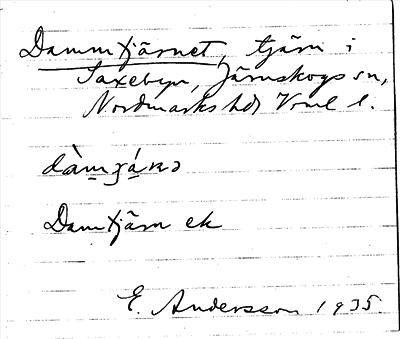 Dammtjärnet, tjärn i
Saxebyn, Järnskogs sn,
Nordmarks hd, Vrml l.
dàmʒánə
Damtjärn ek
E. Andersson 1935.